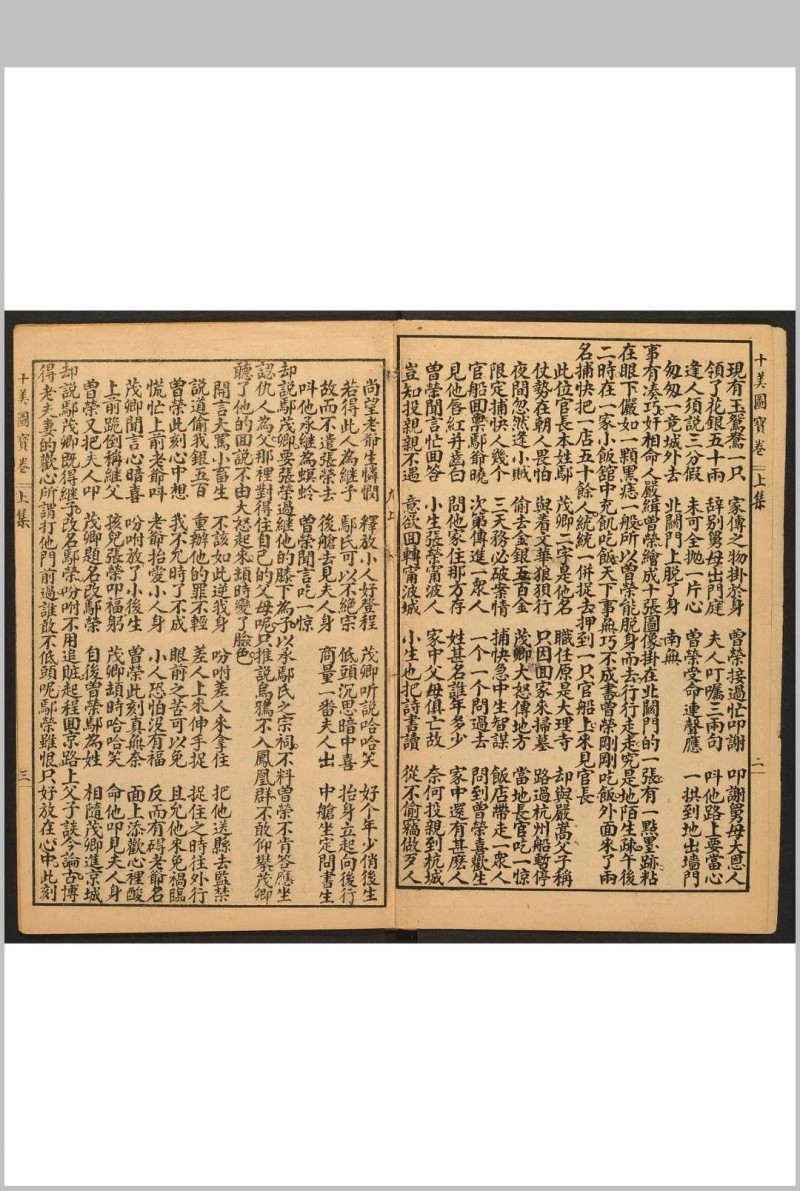 十美圖寶卷 上集 二
現有玉鴛鴦一只 家傳之物掛於身 曾榮接過忙叩謝 叩謝舅母大恩人
領了花銀五十兩 辞別舅母出門庭 夫人叮囑三兩句 呌他路上要當心
逢人須說三分假 未可全抛一片心 曾榮受命連聲應 一拱到地出墻門
匆匆一竟城外去 北關門上脫了身 南無
事有凑巧奸相命人嚴緝曾榮繪成十張圖像掛在北關門的一張有一點墨跡粘
在眼下儼如一顆黑痣一般所以曾榮能脫身而去行行走走究是地陌生疎午後
二時在一家小飯舘中充飢吃飯天下事無巧不成書曾榮剛剛吃飯外面來了兩
名捕快把一店五十餘人統統一併捉去押到一只官船上來見官長
此位官長本姓鄢 茂卿二字是他名 職任原是大理寺 却與嚴嵩父子稱
仗勢在朝人畏怕 與着文華狼狽行 只因回家來掃墓 路過杭州船暫停
夜間忽然逢小賊 偷去金銀五百金 茂卿大怒傳地方 當地長官吃一惊
限定捕快人幾个 三天務必破案情 捕快急中生智謀 飯店帶走一衆人
官船回禀鄢爺曉 次第傳進一衆人 一个一个問過去 問到曾榮喜歡生
見他唇紅并齒白 問他家住那方存 姓甚名誰年多少 家中還有甚麽人
曾榮聞言忙回答 小生張榮甯波人 家中父母俱亡故 奈何投親到杭城
豈知投親親不遇 意欲回轉甯波城 小生也把詩書讀 從不偷竊做歹人
尚望老爺生憐憫 釋放小人好登程 茂卿听說哈哈笑 好个年少俏後生
若得此人為継子 鄢氏可以不絶宗 低頭沉思暗中喜 抬身立起向後行
故而不遣張榮去 後艙去見夫人身 商量一番夫人出 中艙坐定問書生
呌他承継為螟蛉 曾榮聞言吃一惊
却說鄢茂卿要張榮過継他的膝下為子以承鄢氏之宗祠不料曾榮不肯答應坐
認仇人為父那裡對得住自己的父母呢只推說烏鴉不入鳳凰群不敢仰攀茂卿
聽了他的回說不由大怒起來頓時變了臉色
開言大罵小畜生 不該如此逆我身 吩咐差人來拿住 把他送縣去監禁
說道偷我銀五百 重辦他的罪不輕 差人上來伸手捉 捉住之時往外行
曾榮此刻心中想 我不允時了不成 眼前之苦可以免 且允他來免禍臨
慌忙上前老爺呌 老爺抬愛小人身 小人恐怕沒有福 反而有碍老爺名
茂卿聞言心暗喜 吩咐放了小後生 曾榮此刻真無奈 面上添歡心裡酸
上前跪倒稱継父 孩兒張榮叩福躬 茂卿頓時哈哈笑 命他叩見夫人身
曾榮又把夫人叩 茂卿題名改鄢榮 自後曾榮鄢為姓 相隨茂卿進京城
却說鄢茂卿既得継子改名鄢榮吩咐不用追贓起程回京路上父子談今論古博
得老夫妻的歡心所謂打他門前過誰敢不低頭呢鄢榮雖恨只好放在心中此刻
十美圖寶卷 上集 三